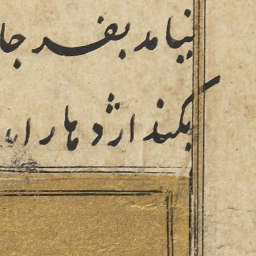 نیامد بفر جا
بکند اژدها را